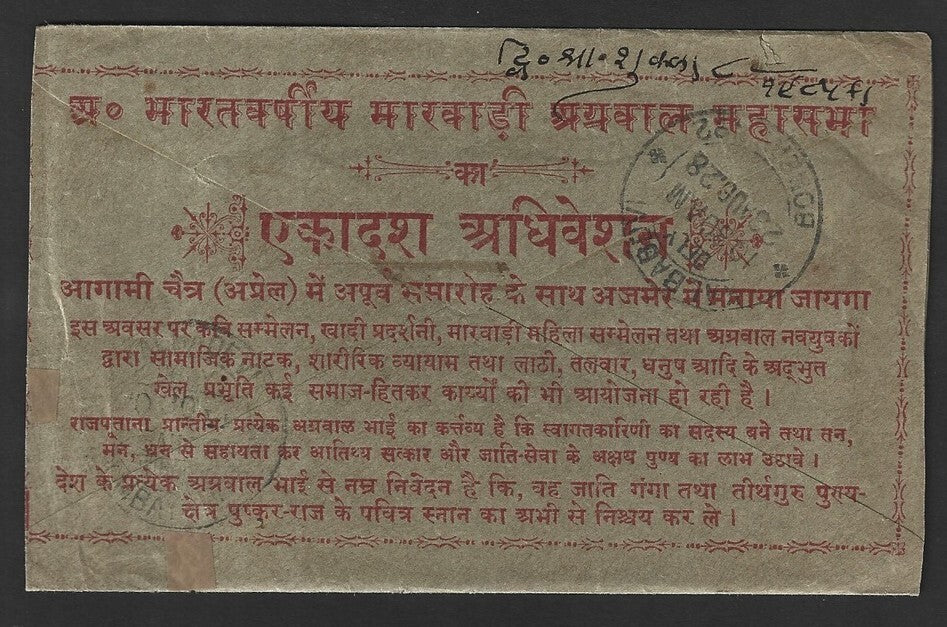 द्वि० श्रा० शुक्ला ८
१९८५
अ० भारतवर्षीय मारवाड़ी अग्रवाल महासभा
का
एकादश अधिवेशन
आगामी चैत्र (अप्रेल) में अपूर्व समारोह के साथ अजमेर में मनाया जायगा
इस अवसर पर कवि सम्मेलन, खादी प्रदर्शनी, मारवाड़ी महिला सम्मेलन तथा अग्रवाल नवयुवकों
द्वारा सामाजिक नाटक, शारीरिक व्यायाम तथा लाठी, तलवार, धनुष आदि के अद्भुत
खेल प्रभृति कई समाज-हितकर कार्य्यों की भी आयोजना हो रही है।
राजपूताना प्रान्तीय प्रत्येक अग्रवाल भाई का कर्त्तव्य है कि स्वागतकारिणी का सदस्य बने तथा तन,
मन, धन से सहायता कर आतिथ्य सत्कार और जाति-सेवा के अक्षय पुण्य का लाभ उठावे।
देश के प्रत्येक अग्रवाल भाई से नम्र निवेदन है कि, वह जाति गंगा तथा तीर्थगुरु पुण्य-
क्षेत्र पुष्कर-राज के पवित्र स्नान का अभी से निश्चय कर ले।
BOMBAY